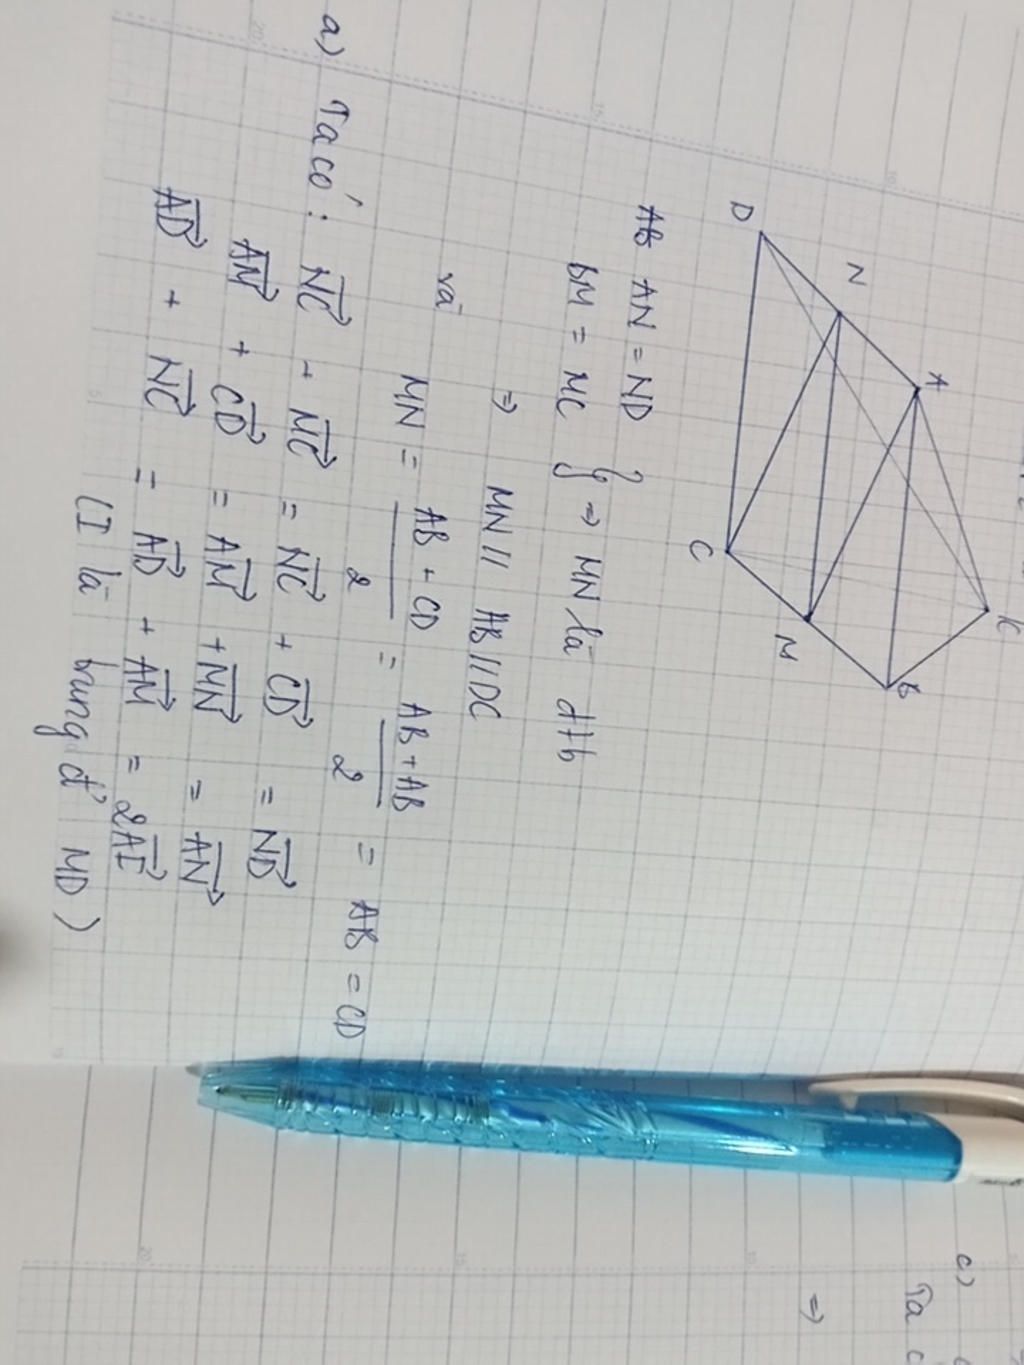 A
K
N
B
D
M
C
AB AN = ND
BM = MC } ⇒ MN là đtb
⇒ MN // AB // DC
và MN = AB + CD / 2 = AB + AB / 2 = AB = CD
a) Ta có: NC + MC = NC + CD = ND
AM + CD = AM + MN = AN
AD + NC = AD + AM = 2AE
(I là trung đ' MD)
c)
Ta c
⇒